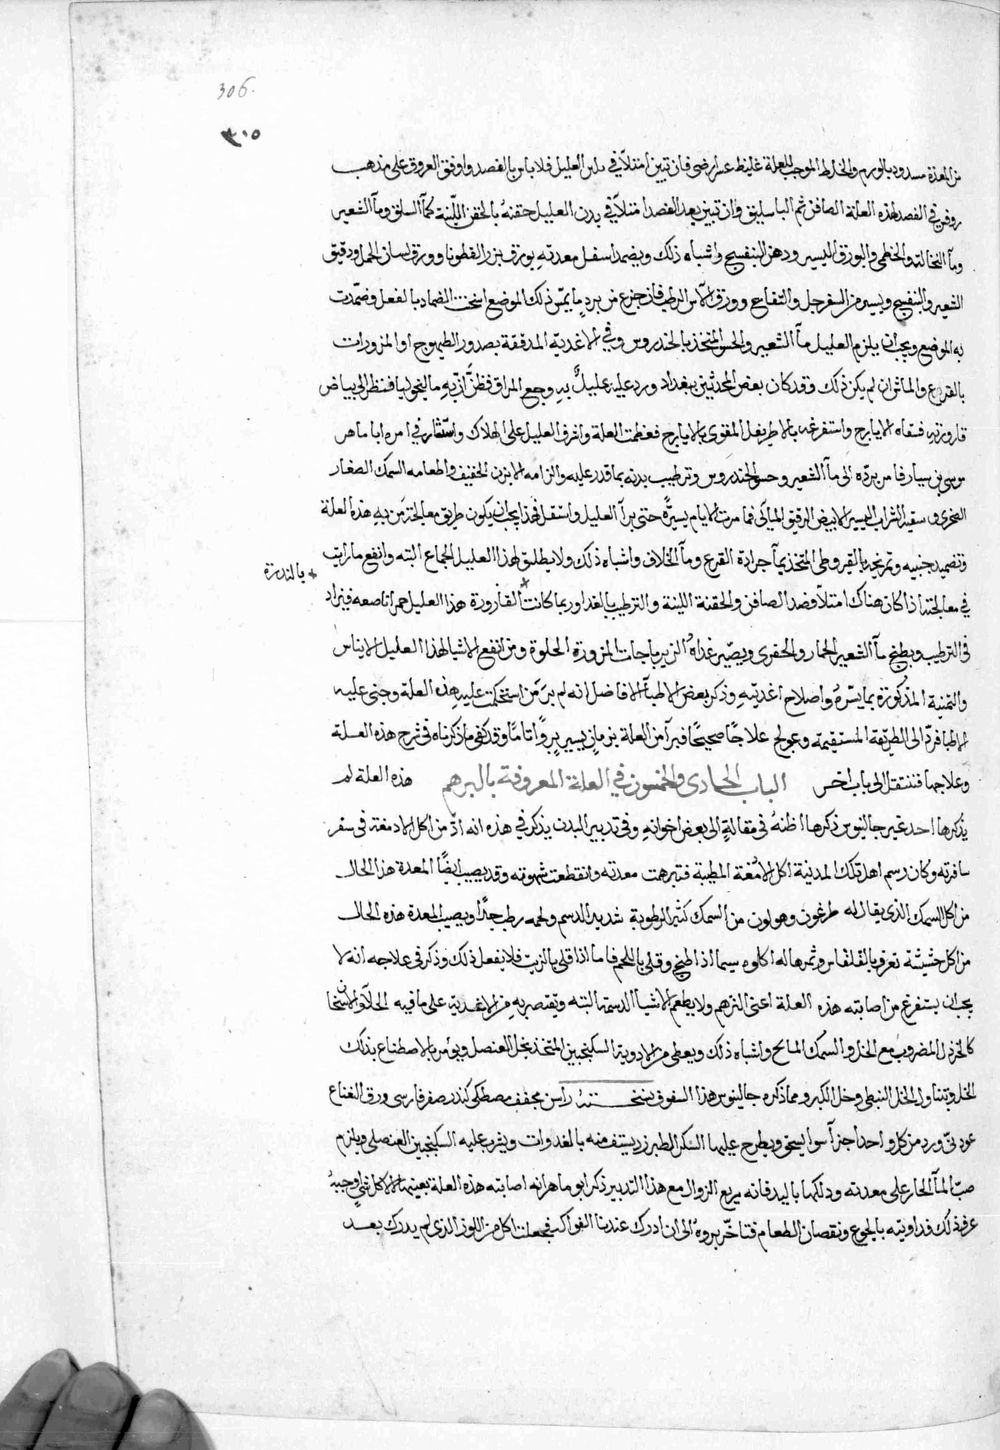 306.
٣٠٥
من المعدة مسدود بالورم والخلط الموجب للعلة غليظ عسر ارضى فان تبين امتلآ فى بدن العليل فلا باس بالفصد واوفق العروق على مذهب
روفس فى الفصد لهذه العلة الصافن ثم الباسليق وان تبين بعد الفصد امتلآ فى بدن العليل حقنه بالحقن اللينة كمآ السلق ومآ الشعير
ومآ النخالة والخطمى والبورق اليسير ودهن البنفسج واشباه ذلك ويضمد اسفل معدته بورق بزر القطونا وورق لسان الحمل ودقيق
الشعير والبنفسج ويسير من السفرجل والتفاح وورق الآس الرطب فان جزع من برد ما يمس ذلك الموضع اسخنت الضماد بالفعل وضمدت
به الموضع ويجب ان يلزم العليل مآ الشعير والحسو المتخذ بالخندروس وفى الاغدية المدققة بصدور الطيهوج او المزورات
بالقرع والماش ان لم يكن ذلك وقد كان بعض المحدثين ببغداد ورد عليه عليل به وجع المراق فظن ان به ماليخوليا فنظر الى بياض
قارورته فسقاه الايارج واستفرغه بالاطريفل المقوى بالايارج فعظمت العلة واشرف العليل على الهلاك واستشار فى امره ابا ماهر
موسى بن سيار فامر برده الى مآ الشعير وحسو الخندروس وترطيب بدنه بما قدر عليه والزامه الابزن الخفيف واطعامه السمك الصغار
الصخرى وسقيه الشراب اليسير الابيض الرقيق المائى فما مرت الايام يسيرة حتى برآ العليل واستقل فهذا يجب ان يكون طريق معالجة من به هذه العلة
وتضميد جنبيه وتمريخه بالقيروطى المتخذ بمآ جرادة القرع ومآ الخلاف واشباه ذلك ولا يطلق لهذا العليل الجماع البته وانفع ما رايت
بالندرة
فى معالجته اذا كان هناك امتلآ فصد الصافن والحقنة اللينة والترطيب بالغدا وربما كانت القارورة هذا العليل حمرآ ناصعه فيزاد
فى الترطيب ويطبخ مآ الشعير الجمار والحفرى ويصير غداه الزيرباجات المزورة الحلوة ومن انفع الاشيا لهذا العليل الايناس
والتمنية المذكورة بما يسره واصلاح اغديته وذكر بعض الاطبآ الافاضل انه لم ير من استحكمت عليه هذه العلة وجنى عليه
الاطبا فرد الى الطريقة المستقيمة وعولج علاجا صحيحا فبرآ من العلة بزمان يسير بروا تاما وقد كفى ما ذكرناه فى شرح هذه العلة
وعلاجها فننتقل الى باب اخر الباب الحادى والخمسون فى العلة المعروفة بالبرهم هذه العلة لم
يذكرها احد غير جالينوس ذكرها اظنه فى مقالة الى بعض اخوانه وفى تدبير البدن يذكر فى هذه انه اكثر من اكل الادمغة فى سفر
سافرته وكان رسم اهل تلك المدينة اكل الادمغة المطيبة فتبرهمت معدته وانقطعت شهوته وقد يصيب ايضا المعدة هذا الحال
من اكل السمك الذى يقال له طرغون وهو لون من السمك كثير الرطوبة شديد الدسم ولحمه رطب جدا ويصيب المعدة هذه الحال
من اكل حشيشة تعرف بالقلقاس وثمرها له اكلوه سيما اذا طبخ وقلى باللحم فاما اذا قلى بالزيت فلا يفعل ذلك وذكر فى علاجه انه لا
يجب ان يستفرغ من اصابته هذه العلة اعنى البرهم ولا يطعم الاشيا الدسمة البته ويقتصر به من الاغدية على ما فيه الحلآ والاسخان
كالخردل المضروب مع الخل والسمك المالح واشباه ذلك ويعطى من الادوية السكنجبين المتخذ بخل العنصل ويؤمر بالاصطناع بذلك
الخل ويتناول الخل النبطى وخل الكبر ومما ذكره جالينوس هذا السفوف نسخته راسن مجفف مصطكى كندر صعتر فارسى ورق النعناع
عود نى ورد من كل واحد اجزآ سوا يسحق ويطرح عليها السكر الطبرزد يستف منه بالغدوات ويشرب عليه السكنجبين العنصلى ويلزم
صب المآ الحار على معدته ودلكها باليد فانه سريع الزوال مع هذا التدبير ذكر ابو ماهر انه اصابته هذه العلة بعينها
عرف ذلك فداويته بالجوع ونقصان الطعام فتاخر بروه الى ان ادرك عندنا الفواكه فجعلت اكل من اللوز الذى لم يدرك بعد